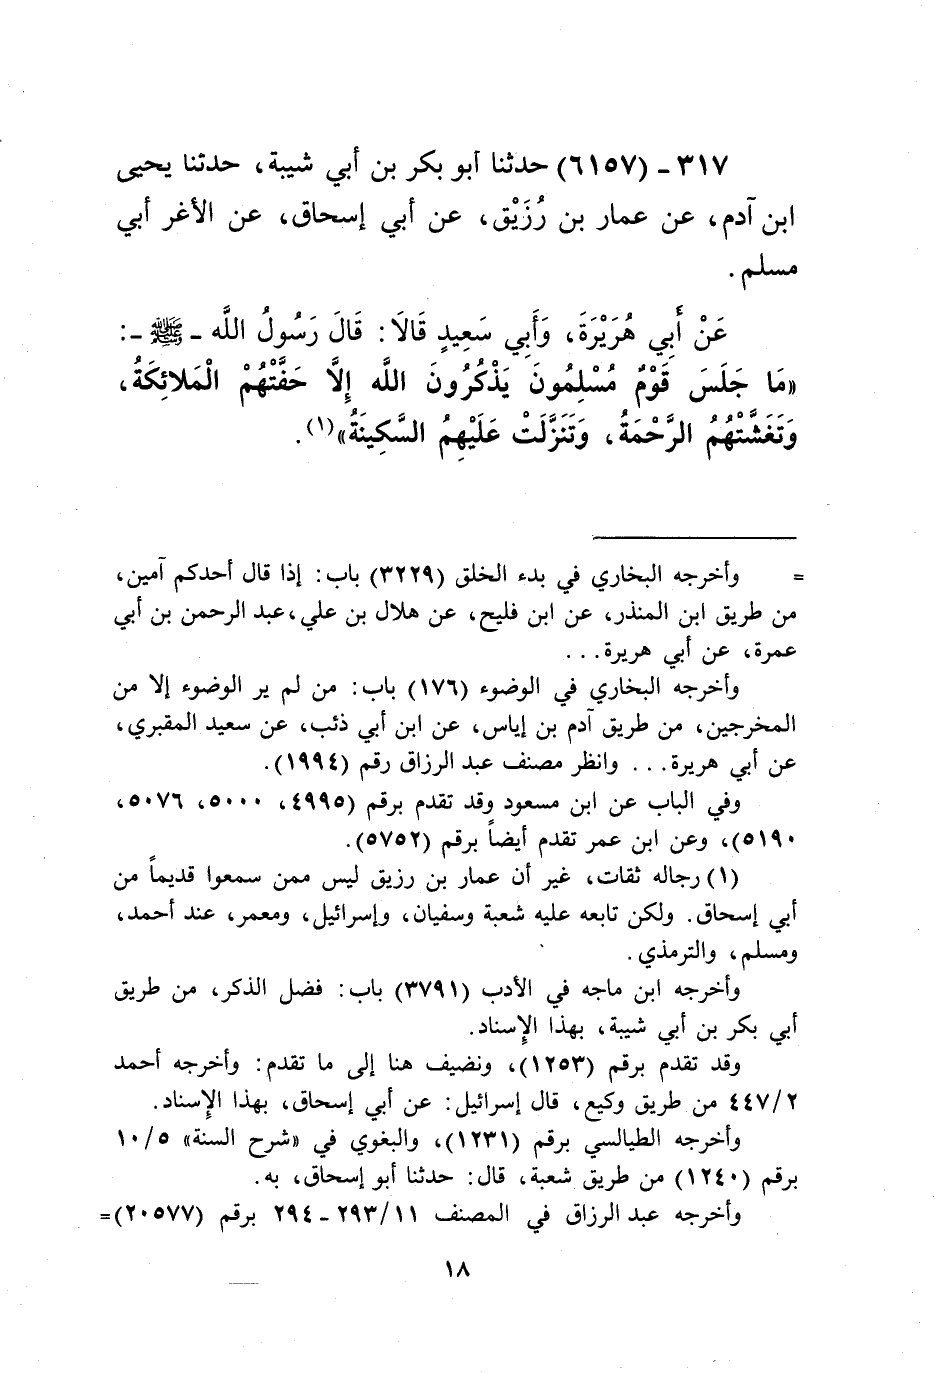 ٣١٧ - (٦١٥٧) حدثنا أبو بكر بن أبي شيبة، حدثنا يحيى
ابن آدم، عن عمار بن رُزَيْق، عن أبي إسحاق، عن الأغر أبي
مسلم.
عَنْ أَبِي هُرَيْرَةَ، وَأَبِي سَعِيدٍ قَالَا: قَالَ رَسُولُ اللَّه - ﷺ -:
«مَا جَلَسَ قَوْمٌ مُسْلِمُونَ يَذْكُرُونَ اللَّه إِلَّا حَفَّتْهُمْ الْمَلائِكَةُ،
وَتَغَشَّتْهُمُ الرَّحْمَةُ، وَتَنَزَّلَتْ عَلَيْهِمُ السَّكِينَةُ»(١).
= وأخرجه البخاري في بدء الخلق (٣٢٢٩) باب: إذا قال أحدكم آمين،
من طريق ابن المنذر، عن ابن فليح، عن هلال بن علي، عبد الرحمن بن أبي
عمرة، عن أبي هريرة...
وأخرجه البخاري في الوضوء (١٧٦) باب: من لم ير الوضوء إلا من
المخرجين، من طريق آدم بن إياس، عن ابن أبي ذئب، عن سعيد المقبري،
عن أبي هريرة... وانظر مصنف عبد الرزاق رقم (١٩٩٤).
وفي الباب عن ابن مسعود وقد تقدم برقم (٤٩٩٥، ٥٠٠٠، ٥٠٧٦،
٥١٩٠)، وعن ابن عمر تقدم أيضاً برقم (٥٧٥٢).
(١) رجاله ثقات، غير أن عمار بن رزيق ليس ممن سمعوا قديماً من
أبي إسحاق. ولكن تابعه عليه شعبة وسفيان، وإسرائيل، ومعمر، عند أحمد،
ومسلم، والترمذي.
وأخرجه ابن ماجه في الأدب (٣٧٩١) باب: فضل الذكر، من طريق
أبي بكر بن أبي شيبة، بهذا الإسناد.
وقد تقدم برقم (١٢٥٣)، ونضيف هنا إلى ما تقدم: وأخرجه أحمد
٤٤٧/٢ من طريق وكيع، قال إسرائيل: عن أبي إسحاق، بهذا الإسناد.
وأخرجه الطيالسي برقم (١٢٣١)، والبغوي في «شرح السنة» ١٠/٥
برقم (١٢٤٠) من طريق شعبة، قال: حدثنا أبو إسحاق، به.
وأخرجه عبد الرزاق في المصنف ٢٩٣/١١ - ٢٩٤ برقم (٢٠٥٧٧)=
١٨